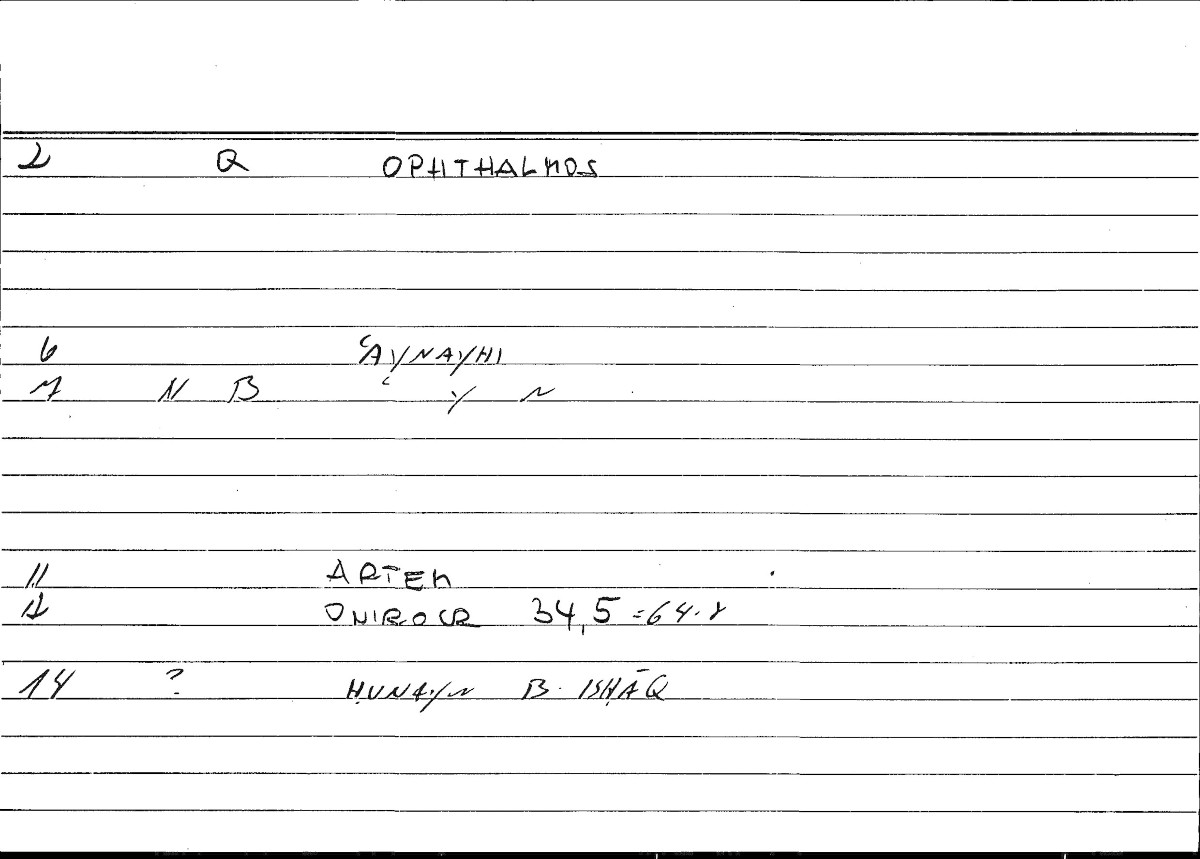 2 Q OPHTHALMOS
6 ʿAYNAYHI
7 N B ʿ Y N
11 ARTEM
12 ONIROCR 34,5 = 64.8
14 ? ḤUNAYN B. ISḤĀQ